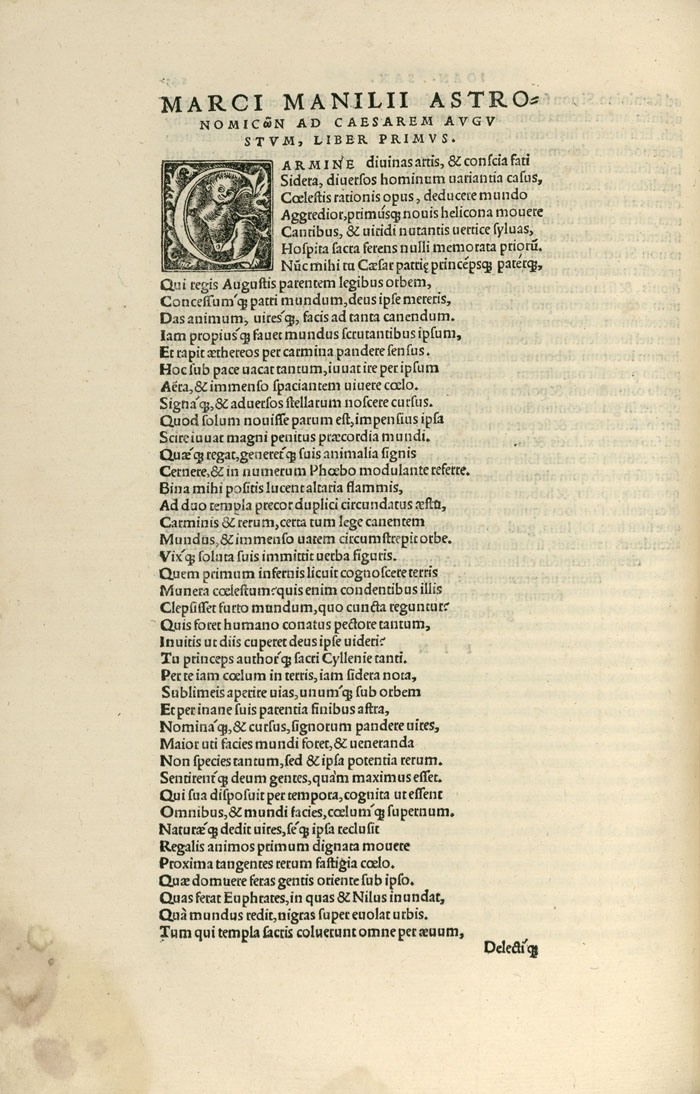 MARCI MANILII ASTRO=
NOMICῶN AD CAESAREM AVGV
STVM, LIBER PRIMVS.
CARMINE diuinas artis, & conscia fati
Sidera, diuersos hominum uariantia casus,
Cœlestis rationis opus, deducere mundo
Aggredior, primúsq; nouis helicona mouere
Cantibus, & uiridi nutantis uertice syluas,
Hospita sacra ferens nulli memorata priorũ.
Nũc mihi tu Cæsar patrię princépsq; patérq;,
Qui regis Augustis parentem legibus orbem,
Concessumq́; patri mundum, deus ipse mereris,
Das animum, uiresq́;, facis ad tanta canendum.
Iam propiusq́; fauet mundus scrutantibus ipsum,
Et rapit æthereos per carmina pandere sensus.
Hoc sub pace uacat tantum, iuuat ire per ipsum
Aëra, & immenso spaciantem uiuere cœlo.
Signaq́;, & aduersos stellarum noscere cursus.
Quod solum nouisse parum est, impensius ipsa
Scire iuuat magni penitus præcordia mundi.
Quæq́; regat, generetq́; suis animalia signis
Cernere, & in numerum Phœbo modulante referre.
Bina mihi positis lucent altaria flammis,
Ad duo templa precor duplici circundatus æstu,
Carminis & rerum, certa tum lege canentem
Mundus, & immenso uatem circumstrepit orbe.
Vixq́; soluta suis immittit uerba figuris.
Quem primum infernis licuit cognoscere terris
Munera cœlestum? quis enim condentibus illis
Clepsisset furto mundum, quo cuncta reguntur?
Quis foret humano conatus pectore tantum,
Inuitis ut diis cuperet deus ipse uideri?
Tu princeps authorq́; sacri Cyllenie tanti.
Per te iam cœlum in terris, iam sidera nota,
Sublimeis aperire uias, unumq́; sub orbem
Et per inane suis parentia finibus astra,
Nominaq́;, & cursus, signorum pandere uires,
Maior uti facies mundi foret, & ueneranda
Non species tantum, sed & ipsa potentia rerum.
Sentirentq́; deum gentes, quàm maximus esset.
Qui sua disposuit per tempora, cognita ut essent
Omnibus, & mundi facies, cœlumq́; supernum.
Naturæq́; dedit uires, seq́; ipsa reclusit
Regalis animos primum dignata mouere
Proxima tangentes rerum fastigia cœlo.
Quæ domuere feras gentis oriente sub ipso.
Quas ferat Euphrates, in quas & Nilus inundat,
Quà mundus redit, nigras super euolat urbis.
Tum qui templa sacris coluerunt omne per æuum,
Delectiq́;